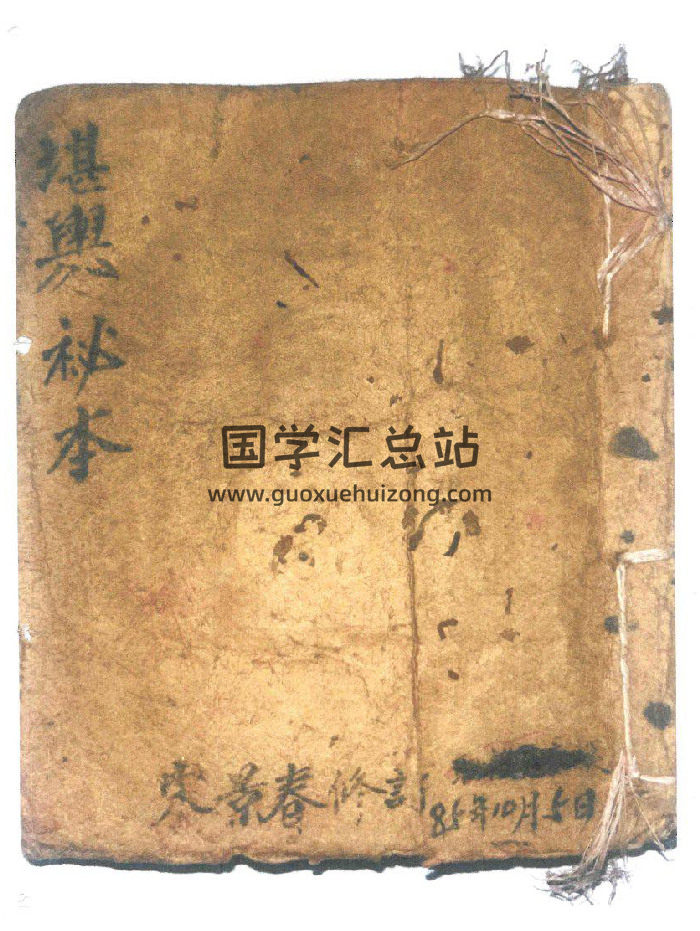 堪舆秘本
国学汇总站
www.guoxuehuizong.com
景春修訂
85年10月5日